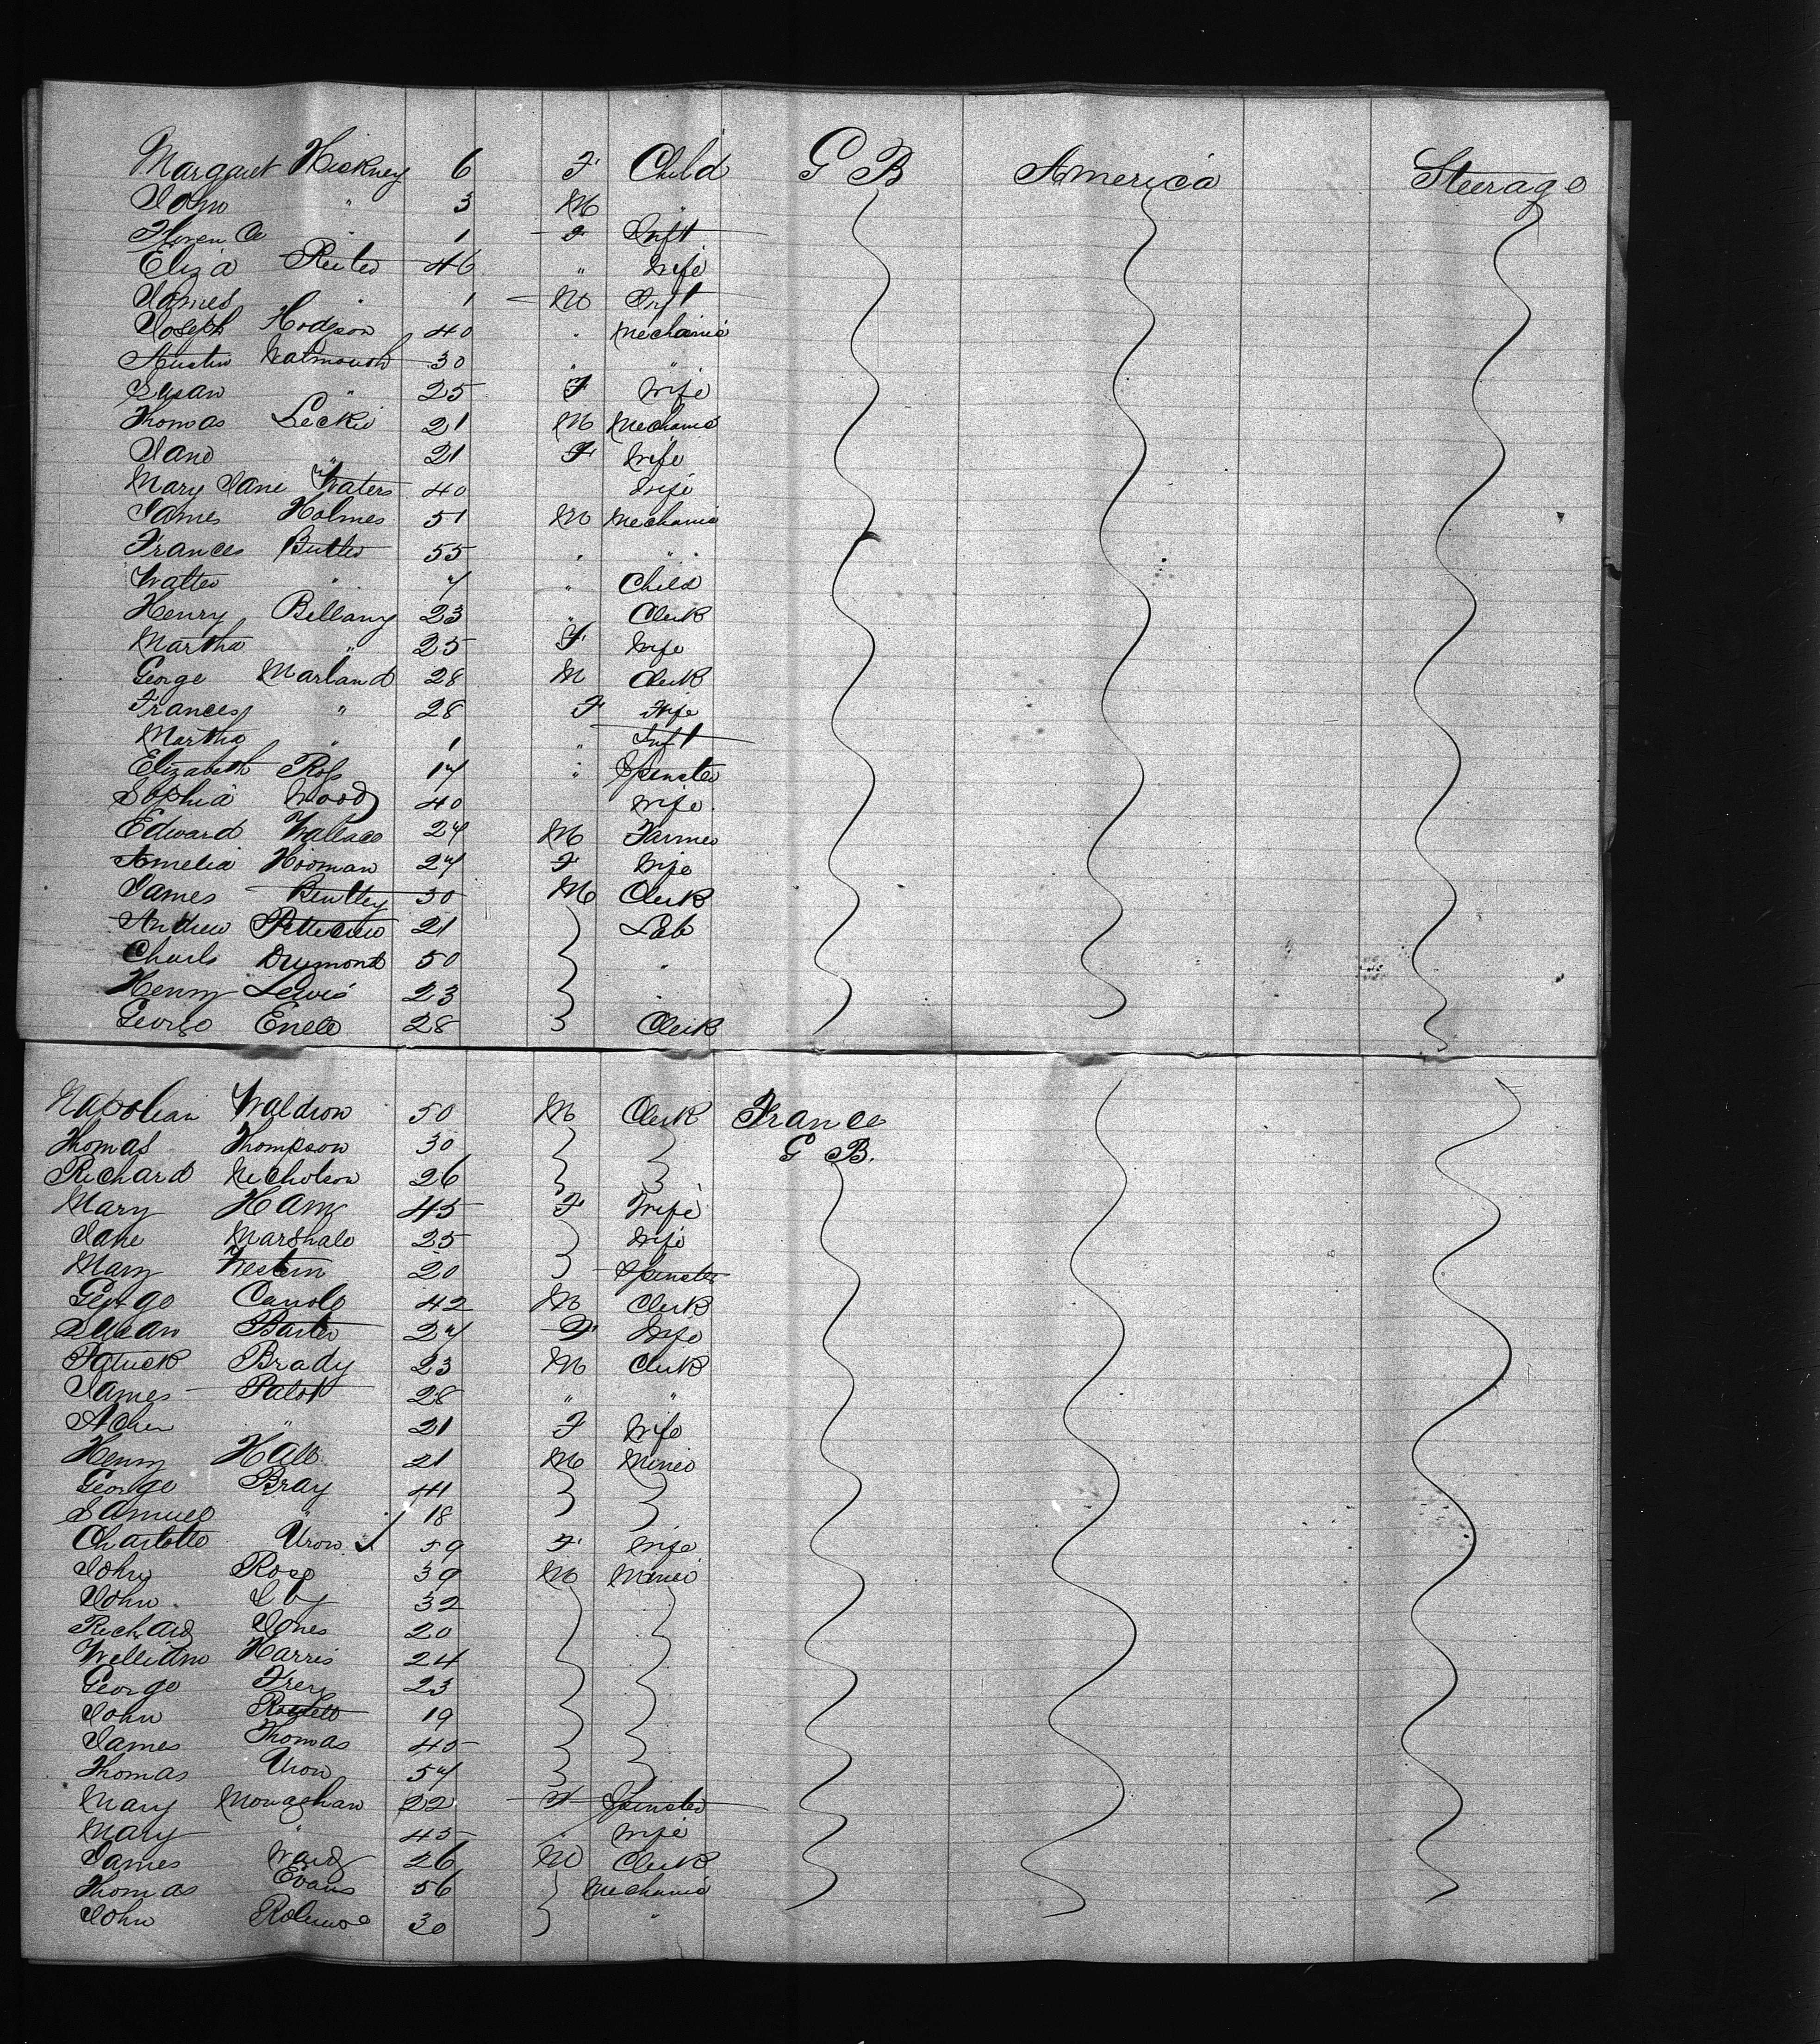 Margaret Hickney 6 F Child G B America Steerage
John " 3 M "
1 F Inft
Eliza 46 " Wife
James " 1 M Inft
Joseph Hodgson 40 " Mechanic
Austin Watmough 30 " "
Susan " 25 F Wife
Thomas Leckie 21 M Mechanic
Jane " 21 F Wife
Mary Jane Waters 40 Wife
James Holmes 51 M Mechanic
Frances Butler 55 " "
Walter " 7 " Child
Henry Bellamy 23 " Clerk
Martha " 25 F Wife
George Marland 28 M Clerk
Frances " 28 F Wife
Martha " 1 " Inft
Elizabeth Ross 17 " Spinster
Sophia Wood 40 Wife
Edward Wallace 27 M Farmer
Amelia Hooman 27 F Wife
James Bentley 30 M Clerk
Andrew 21 Lab
Charls Drumond 50 "
Henry Lewis 23 "
George 28 Clerk
Napolian Waldron 50 M Clerk France
Thomas Thompson 30 G B.
Richard Nicholson 26
Mary Ham 45 F Wife
Jane Marshall 25 Wife
Mary Western 20 Spinster
George 42 M Clerk
Susan Baxter 27 F Wife
Patrick Brady 23 M Clerk
James 28 " "
" 21 F Wife
Henry Hall 21 M Miner
George Bray 41
Samuel " 18
Charlotte Uron 59 F Wife
John Rose 39 M Miner
John 32
Richard Jones 20
William Harris 24
George 23
John 19
James Thomas 45
Thomas Uron 57
Mary Monaghan 22 F Spinster
Mary " 45 " Wife
James Ward 26 M Clerk
Thomas Evans 56 Mechanic
John 30 "